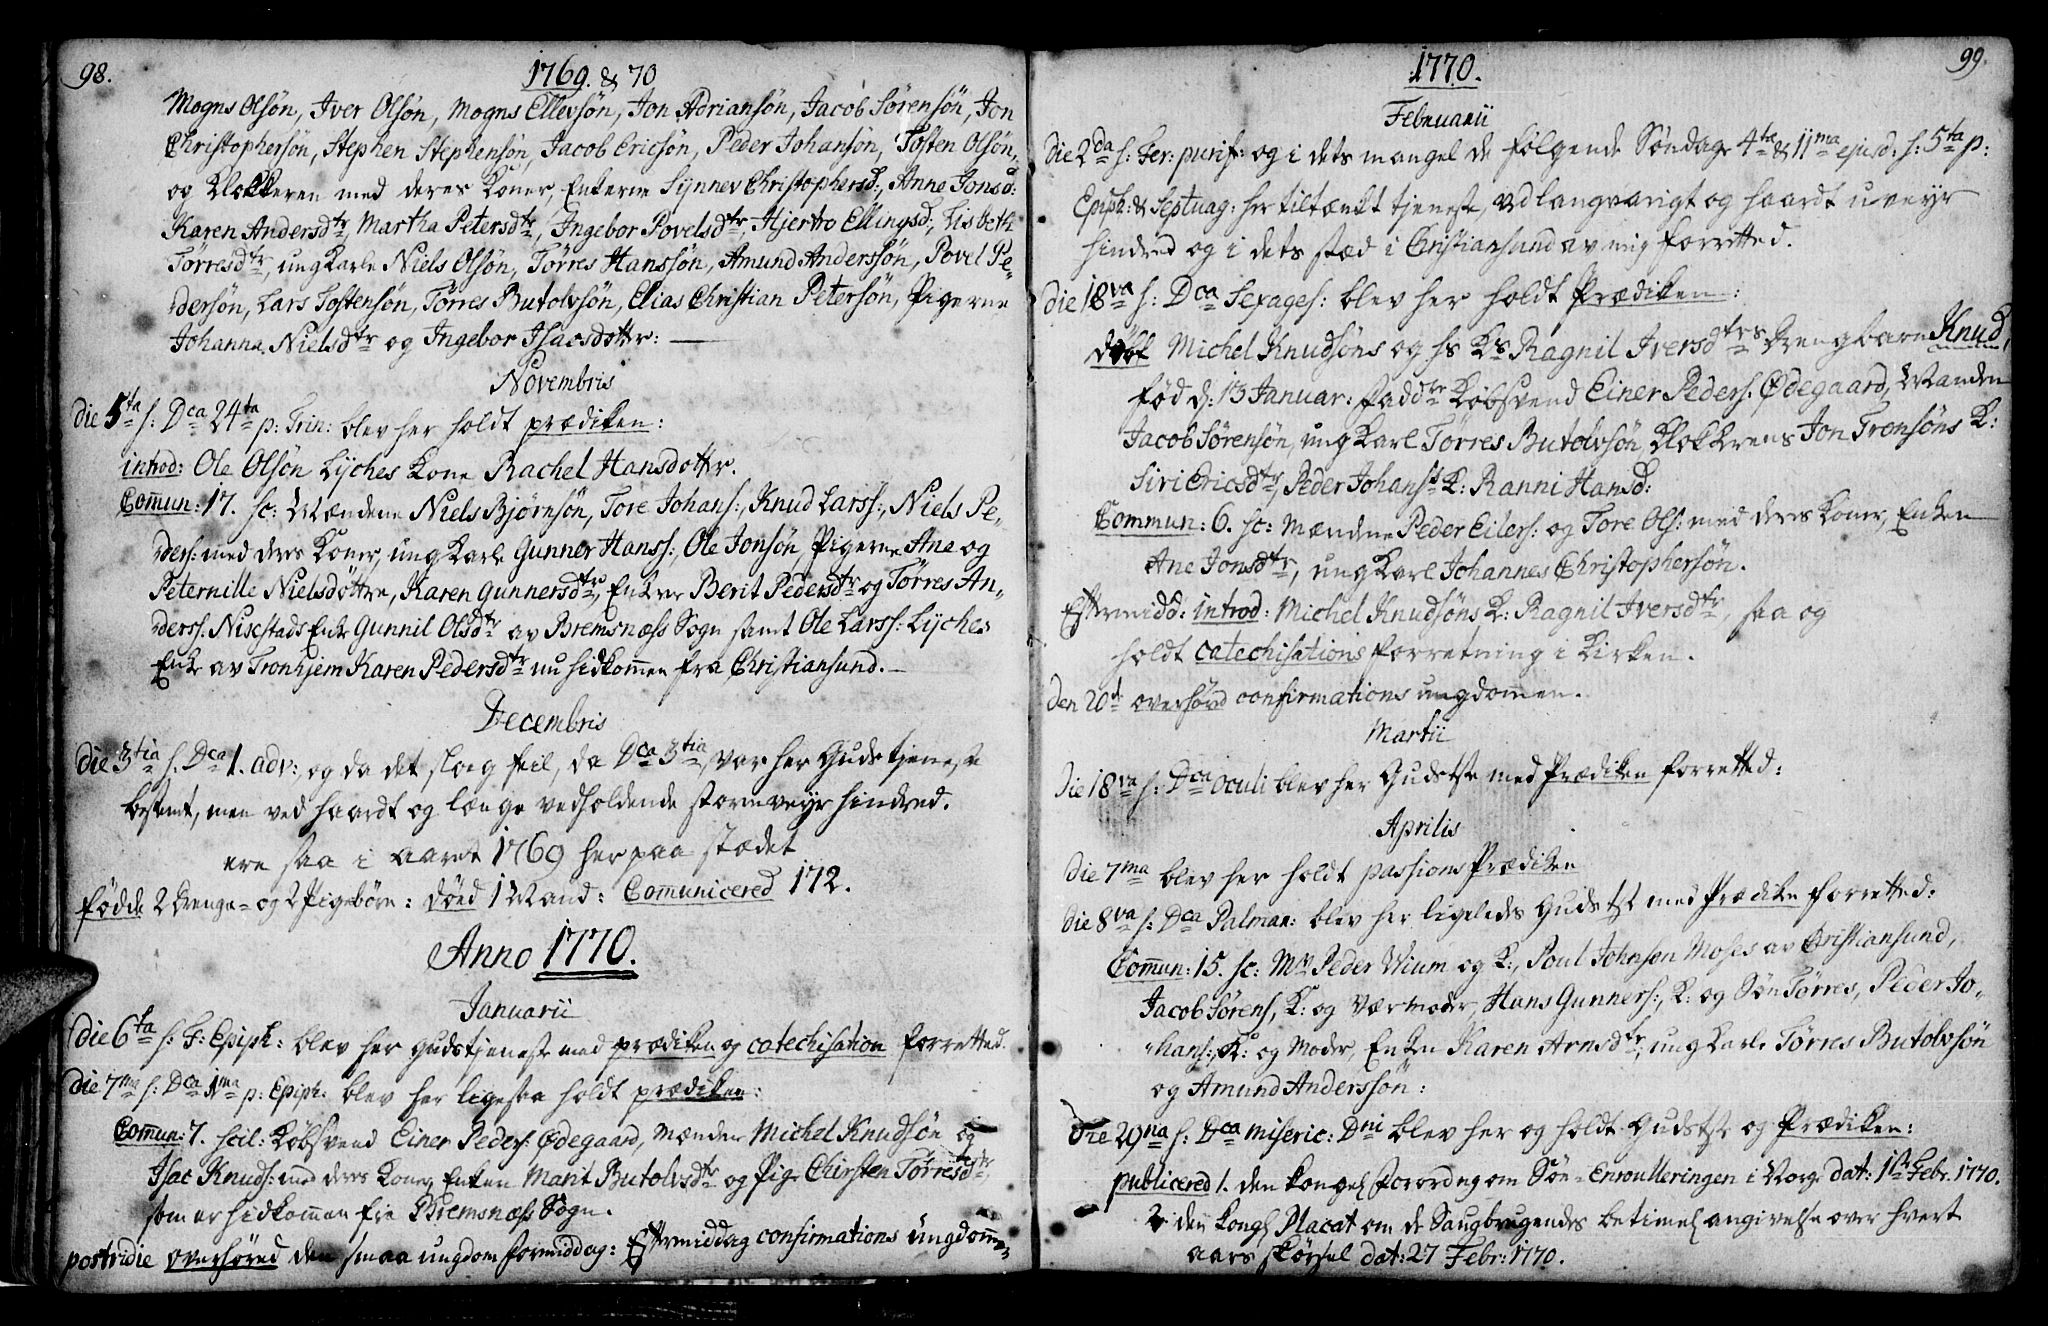 98.
1769. & 70
Mogns Olsøn, Iver Olsøn, Mogns Ellevsøn, Jon Adriansøn, Jacob Sørensøn, Jon
Christophersøn, Stephen Stephensøn, Jacob Ericsøn, Peder Johansøn, Tosten Olsøn,
og Klokkeren med deres Koner, Enkerne Synnev Christophersd:, Anne Jonsd:
Karen Andersdtr, Martha Petersdtr, Ingebor Povelsdtr, Hjertro Ellingsd:, Lisbeth
Tørresdtr, ungKarle Niels Olsøn, Tørres Hanssøn, Amund Anderssøn, Povel Pe-
dersøn, Lars Tostensøn, Tørres Butolvsøn, Elias Christian Petersøn, Pigerne
Johanna Nielsdtr og Ingebor Isacsdottr:
Novembris
die 5ta s: Dca 24ta p: Trin: blev her holdt prædiken:
introd: Ole Olsøn Lyches Kone Rachel Hansdottr.
Comun: 17. sc: Mændene Niels Bjørnsøn, Tore Johans:, Knud Larss:, Niels Pe-
ders: med deres Koner, ungKarle Gunner Hanss:, Ole Jonsøn, Pigerne Ane og
Peternille Nielsdøttre, Karen Gunnersdtr, Enker Berit Pedersdtr og Tørres An-
derss: Nisestads Enke Gunnil Olsdtr av Bremsnæss Sogn samt Ole Larss: Lyches
Enke av Tronhjem Karen Pedersdtr nu hidkomen fra Christiansund.
Decembris
die 3tia s. Dca 1. adv: og da det slog feil, da Dca 3tia, var her Gudstjeneste
bestemt, men ved haardt og længe vedholdende stormveyr hindred.
ere saa i aaret 1769 her paa stædet
fødde 2 Drenge- og 2 Pigebørn: døed 1 Mand: Comunicered 172.
Anno 1770.
Januarii
die 6ta s: F: Epiph: blev her Gudstjeneste med prædiken og catechisation forretted.
die 7ma s: Dca 1ma p: Epiph: blev her ligesaa holdt prædiken:
Comun: 7. scil: Købsvend Einer Peders: Ødegaard, Mændene Michel Knudsøn og
Isac Knuds: med deres Koner, Enken Marit Butolvsdtr og Pige Chirsten Tørresdtr,
som er hidkomen fra Bremsnæss Sogn.
postridie overhøred den smaa ungdom formiddag: Eftermiddag confirmations ungdomen.
99.
1770.
Februarii
die 2da s: Fer: purif: og i dets mangel de følgende Søndage 4ta & 11ma ejusd: s: 5ta p:
Epiph: & Septuag: her tiltænkt tjeneste, ved langvarigt og haardt uveyr
hindred og i dets stæd i Christiansund av mig forretted.
die 18va s: Dca Sexages: blev her holdt Prædiken:
døbt Michel Knudsøns og hs Ks Ragnil Iversdtrs Drengbarn Knud,
fød d: 13 Januar: faddr Købsvend Einer Peders: Ødegaard, Manden
Jacob Sørensøn, ungKarl Tørres Butolvsøn, Klokkerens Jon Tronsøns K:
Siri Ericsdtr, Peder Johanss K: Ranni Hansd:
Commun: 6. sc: Mændene Peder Eilers: og Tore Ols: med deres Koner, Enken
Ane Jonsdtr, ungKarl Johannes Christophersøn.
Eftermidd: introd: Michel Knudsøns K: Ragnil Iversdtr, saa og
holdt catechisations forretning i Kirken.
Den 20de overhørd confirmations ungdomen.
Martii
die 18va s: Dca Oculi blev her Gudstste med Prædiken forretted:
Aprilis
die 7ma blev her holdt passions Prædiken
die 8va s: Dca Palmar: blev her ligeledes Gudstste med Prædiken forretted:
Comun: 15. sc: Mr Peder Wium og K:, Poul Johnsen Moses av Christiansund,
Jacob Sørens, K: og Værmoder, Hans Gunners:, K: og Søn Tørres, Peder Jo-
hans:, K: og Moder, Enken Karen Arnsdtr, ungKarle Tørres Butolvsøn
og Amund Anderssøn:
die 29na s: Dca Miseric: Dni blev her og holdt Gudstste og Prædiken:
publicered 1. den Kongel Forordng om Søe-Enroulleringen i Norge dat: 1ste Febr. 1770.
2 den Kongl Placat om de Saugbrugendes betimel angivelse over hvert
aars skørsel dat: 27 Febr: 1770.